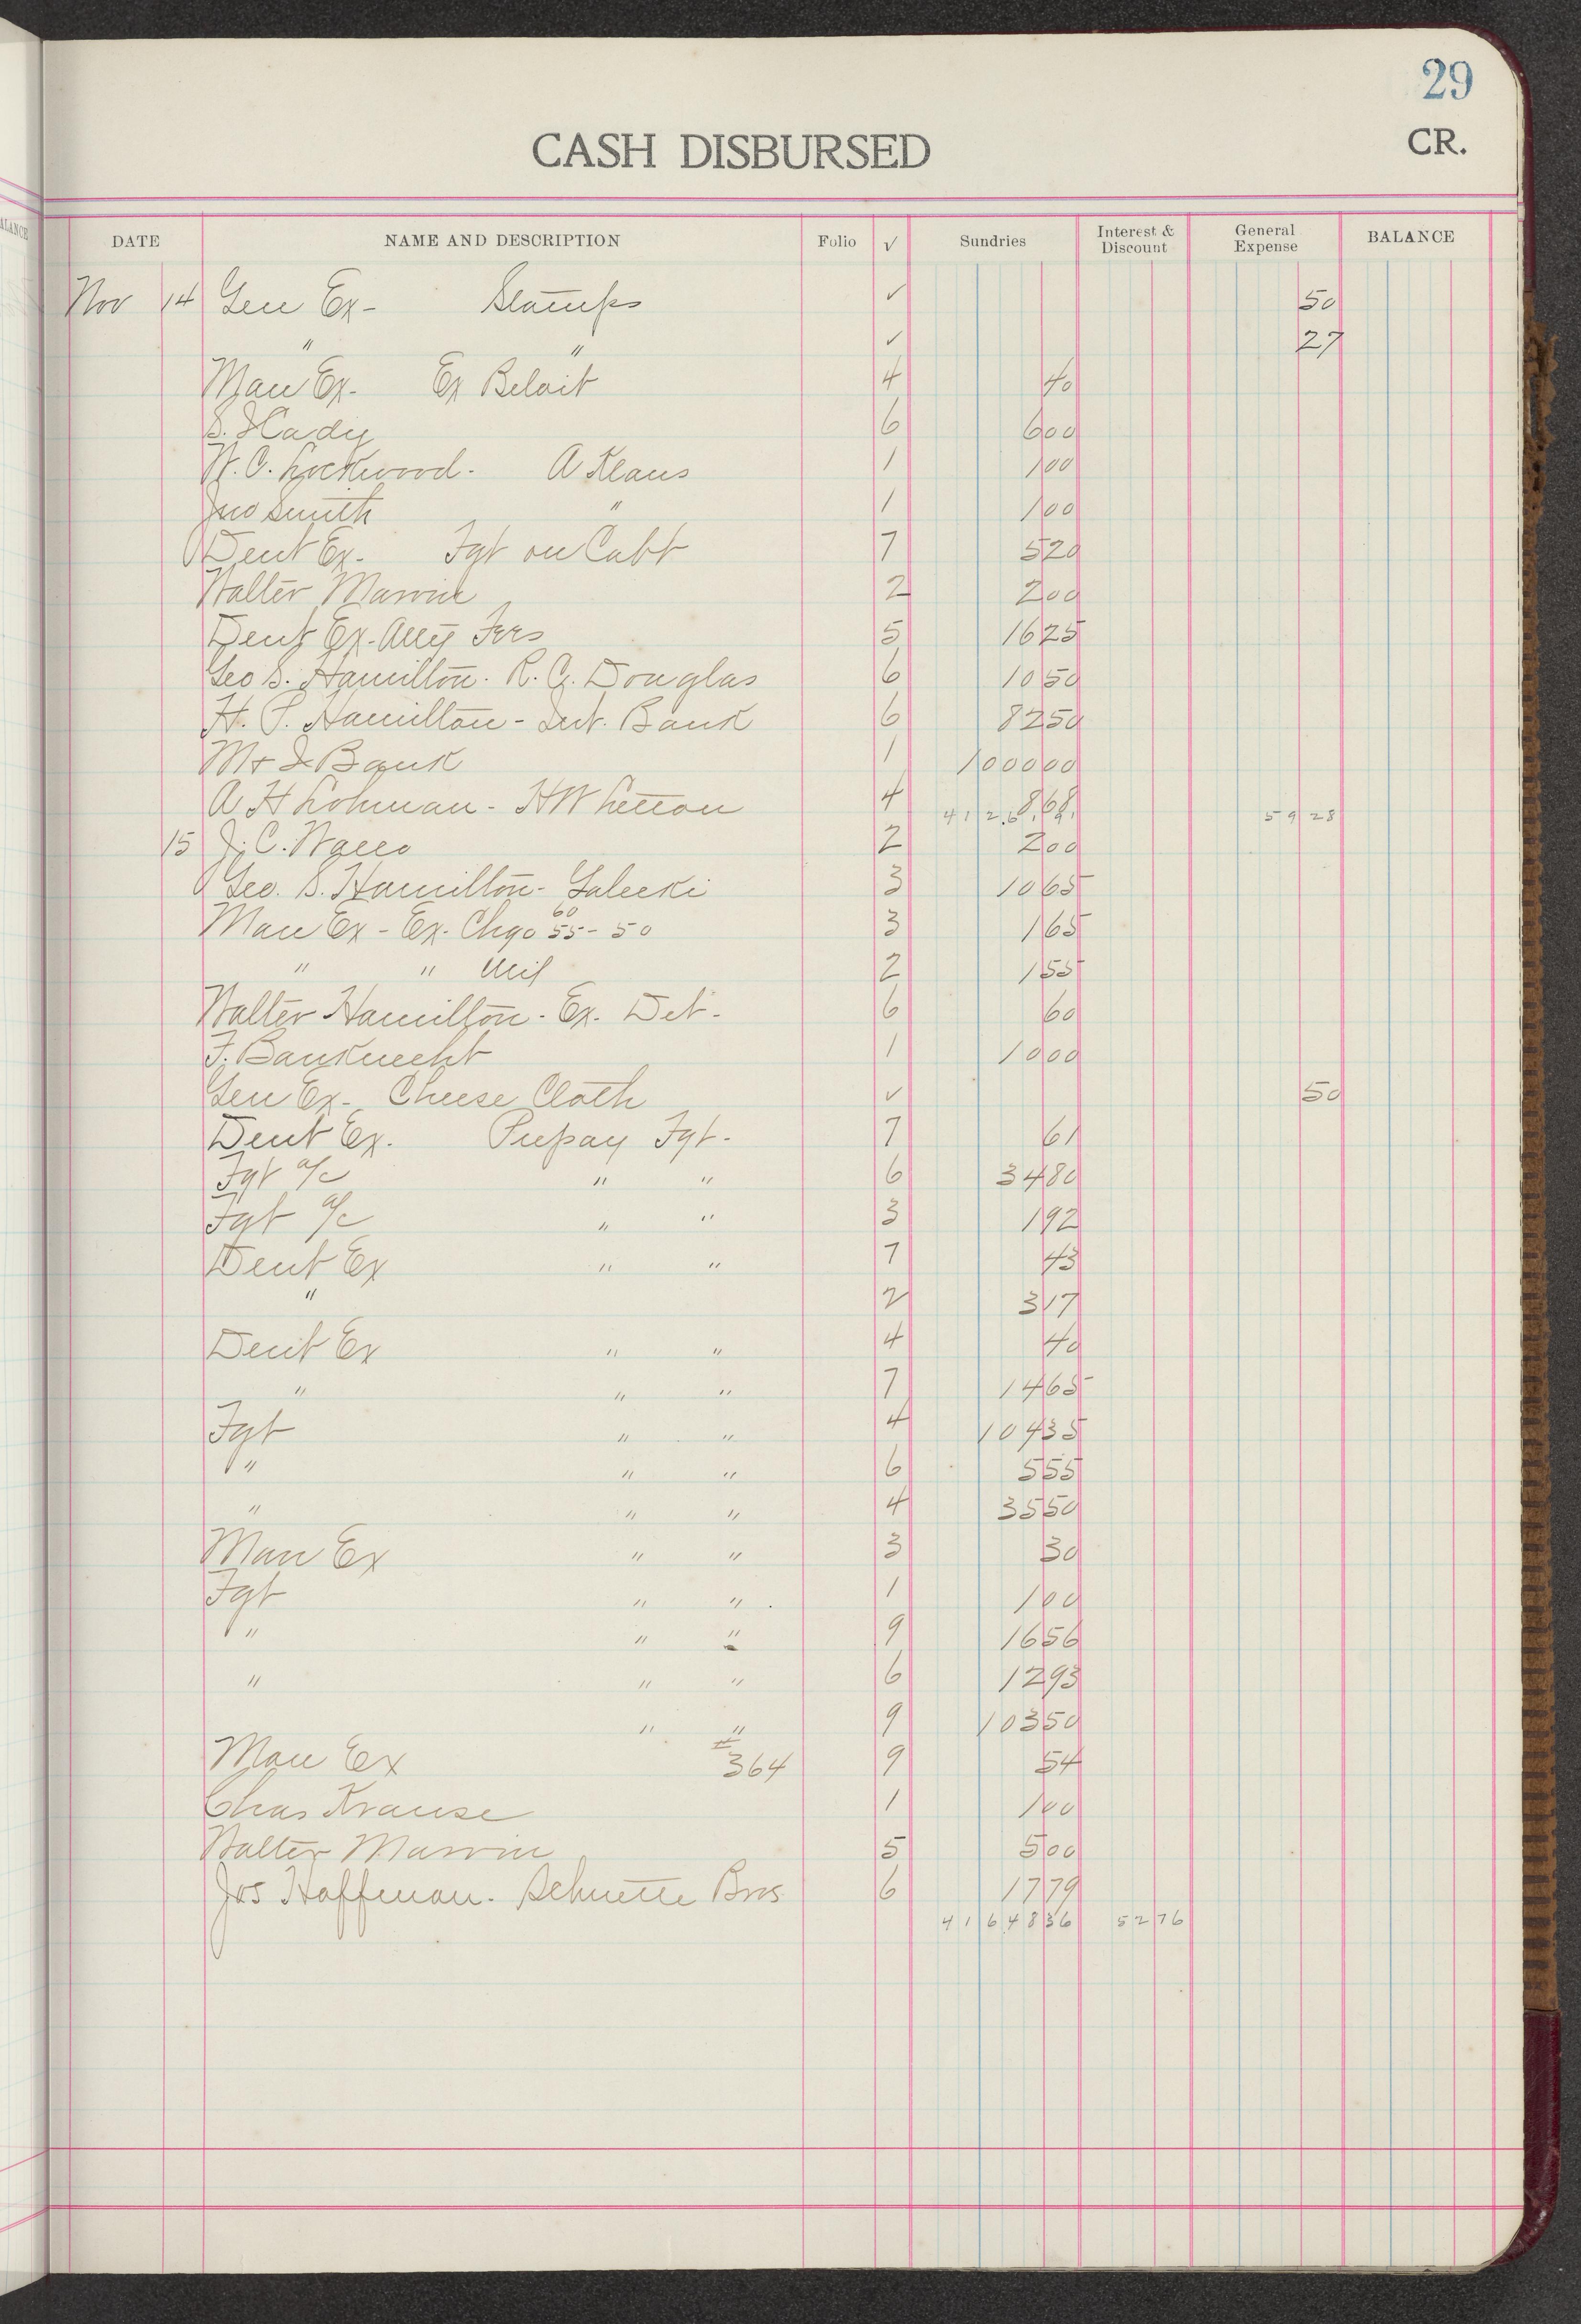 29
CASH DISBURSED CR.
ALANCE
DATE NAME AND DESCRIPTION Folio √ Sundries Interest & Discount General Expense BALANCE
Nov 14 Gen Ex- Stamps ✓ 50
" " ✓ 27
Man Ex- Ex Beloit 4 40
S. J Cady 6 600
W. C. Lockwood. A Klaus 1 100
Jno Smith " 1 100
Dent Ex- Fgt on Cabt 7 520
Walter Marvin 2 200
Dent Ex- Atty Fees 5 1625
Geo S. Hamilton. R. C. Douglas 6 1050
H. P. Hamilton - Int. Bank 6 8250
M & Bank 1 100000
A H Lohman - H W 4 868
5928
15 J. C. 2 200
Geo. S. Hamilton - Galecki 3 1065
Man Ex - Ex. Chgo 60 55- 50 3 165
" " Mil 2 155
Walter Hamilton - Ex. Det - 6 60
F. Banknecht 1 1000
Gen Ex - Cheese Cloth ✓ 50
Dent Ex. Prepay Fgt - 7 61
Fgt a/c " " 6 3480
Fgt a/c " " 3 192
Dent Ex " " 7 43
" 2 317
Dent Ex " " 4 40
" " " 7 1465
Fgt " " 4 10435
" " " 6 555
" " " 4 3550
Man Ex " " 3 30
Fgt " " 1 100
" " " 9 1656
" " " 6 1293
" " 9 10350
Man Ex # 364 9 54
Chas Krause 1 100
Walter Marvin 5 500
Jos Hoffman. Schuette Bros 6 1779
4164836 5276